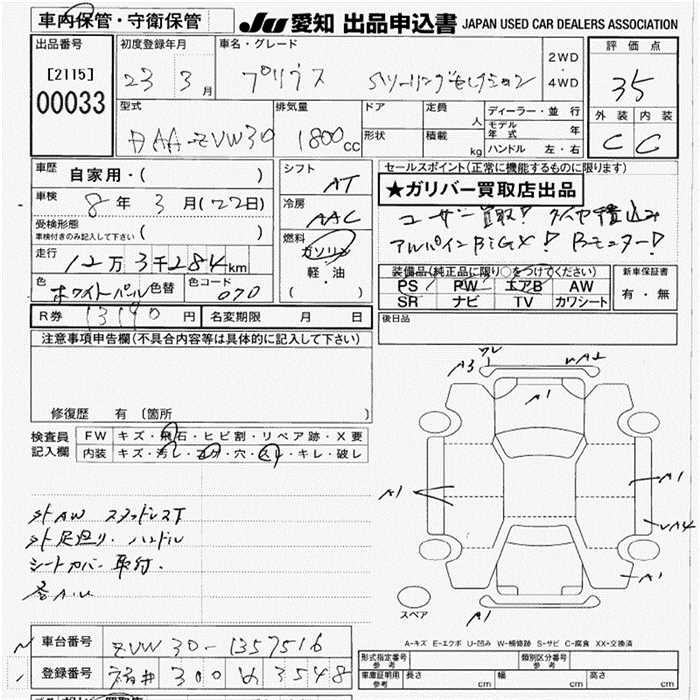 車内保管・守衛保管
JU 愛知 出品申込書 JAPAN USED CAR DEALERS ASSOCIATION
出品番号
[2115]
00033
初度登録年月
23 3月
車名・グレード
プリウス Sツーリングセレクション
2WD
・
4WD
評価点
35
外装 内装
C C
型式
DAA-ZVW30
排気量
1800cc
ドア
形状
定員 人
積載 kg
ディーラー・並行
モデル年式 年
ハンドル 左・右
車歴
自家用・( )
車検
8年 3月(22日)
受検形態
車検付きのみ記入して下さい ( )
走行
12万3千284km
色
ホワイトパール 色替
色コード
070
シフト
AT
冷房
AAC
燃料
ガソリン
軽・油
( )
セールスポイント(正常に機能するものに限ります)
★ガリバー買取店出品
ユーザー買取! タイヤ積込み
アルパインBIGX! Bモニター!
装備品(純正品に限り○をつけてください)
PS PW エアB AW
SR ナビ TV カワシート
新車保証書
有・無
R券 13190円 名変期限 月 日
後日品
注意事項申告欄(不具合内容等は具体的に記入して下さい)
修復歴 有 〔箇所 〕
検査員
記入欄
FW キズ・飛石・ヒビ割・リペア跡・X要
内装 キズ・汚レ・コゲ・穴・スレ・キレ・破レ
外AW スタッドレスT
外足廻り、ハンドル
シートカバー取付.
A3
A2
A1
A1
A1
A4
A1
A1
スペア
A-キズ E-エクボ U-凹み W-補修跡 S-サビ C-腐食 XX-交換済
車台番号 ZVW30-1357516
登録番号 福井 300 め 3548
形式指定番号
参考
類別区分番号
参考
車庫証明用
参考
長さ cm 幅 cm 高さ cm